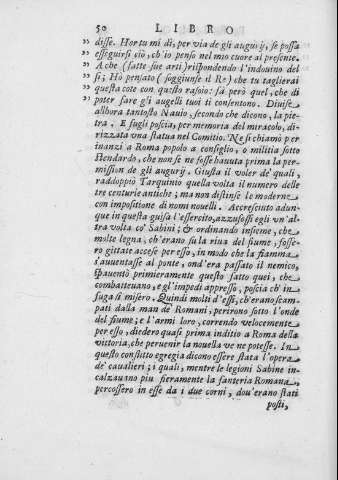 50 LIBRO
” disse. Hor tu mi dì, per via de gli augurij, se possa
” esseguirsi ciò, ch'io penso nel mio cuore al presente.
” A che (fatte sue arti) rispondendo l'indouino del
” sì; Hò pensato (soggiunse il Re) che tu taglierai
” questa cote con questo rasoio: fà però quel, che di
” poter fare gli augelli tuoi ti consentono. Diuise
allhora tantosto Nauio, secondo che dicono, la pie-
tra. E fugli poscia, per memoria del miracolo, di-
rizzata vna statua nel Comitio. Ne si chiamò per
inanzi a Roma popolo a consiglio, o militia sotto
stendardo, che non se ne fosse hauuta prima la per-
mission de gli augurij. Giusta il voler de' quali,
raddoppiò Tarquinio quella volta il numero delle
tre centurie antiche; ma non distinse le moderne
con impositione di nomi nouelli. Accresciuto adun-
que in questa guisa l'essercito, azzuffossi egli vn'al-
tra volta co' Sabini; & ordinando insieme, che
molte legna, ch'erano su la riua del fiume, fosse-
ro gittate accese per esso, in modo che la fiamma
s'auuentasse al ponte, ond'era passato il nemico,
spauentò primieramente questo fatto quei, che
combatteuano, e gl'impedì appresso, poscia ch'in
fuga si misero. Quindi molti d'essi, ch'erano scam-
pati dalla man de' Romani, perirono sotto l'onde
del fiume; e l'armi loro, correndo velocemente
per esso, diedero quasi prima inditio a Roma della
vittoria, che peruenir la nouella ve ne potesse. In
questo conflitto egregia dicono essere stata l'opera
de' cauallieri; i quali, mentre le legioni Sabine in-
calzauano più fieramente la fanteria Romana,
percossero in esse da i due corni, dou'erano stati
posti,